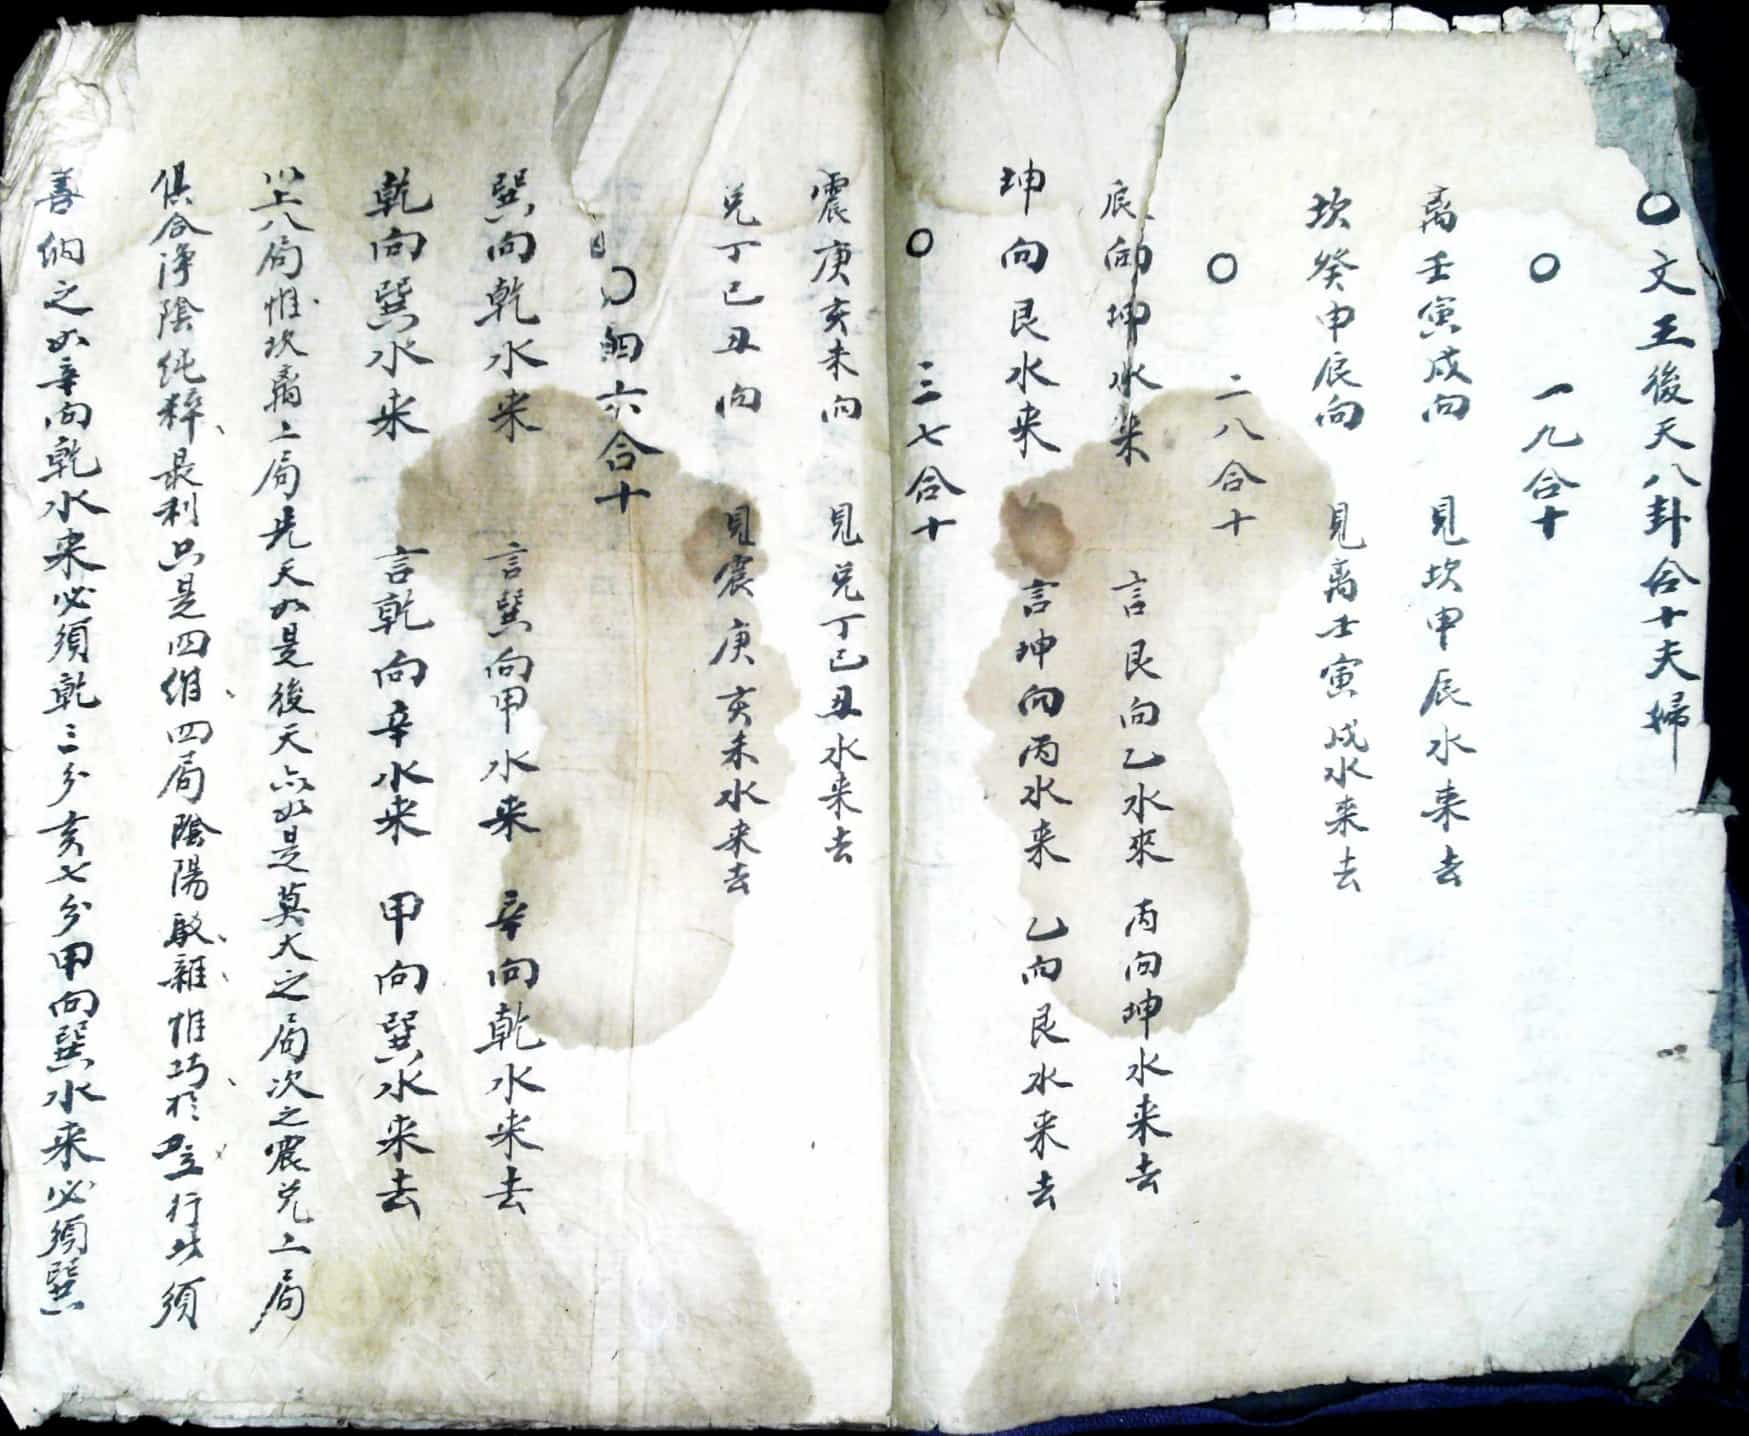 〇文王後天八卦合十夫婦
〇 一九合十
离壬寅戌向 見坎申辰水来去
坎癸申辰向 見离壬寅戌水来去
〇 二八合十
艮向坤水来 言艮向乙水來 丙向坤水来去
坤向艮水来 言坤向丙水来 乙向艮水来去
〇 三七合十
震庚亥未向 見兑丁巳丑水来去
兑丁巳丑向 見震庚亥未水来去
〇四六合十
巽向乾水来 言巽向甲水来 辛向乾水来去
乾向巽水来 言乾向辛水来 甲向巽水来去
以上八局惟坎离二局先天如是後天亦如是莫大之局次之震兑二局
俱合淨陰純粹最利只是四維四局陰陽駁雜惟巧於立行此須
善納之如辛向乾水来必須乾三分亥七分甲向巽水来必須巽